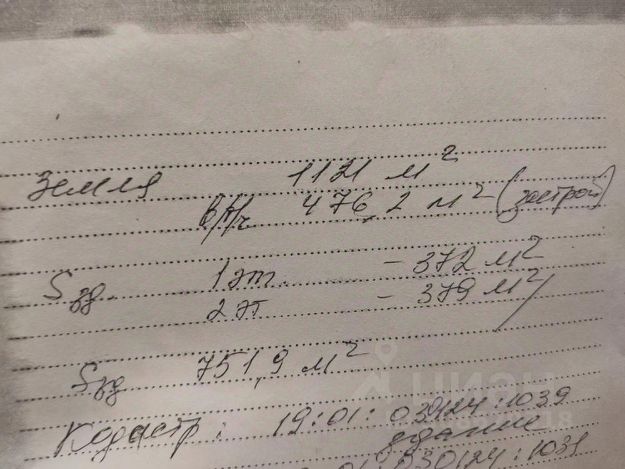 Земля 1121 м²
в/т/ч 476,2 м² (застрой)
Sзд. 1 эт. – 372 м²
2 эт – 379 м²
Sзд 751,9 м²
ЦИАН
Кадастр: 19:01:030124:1039
здание
01:030124:1031